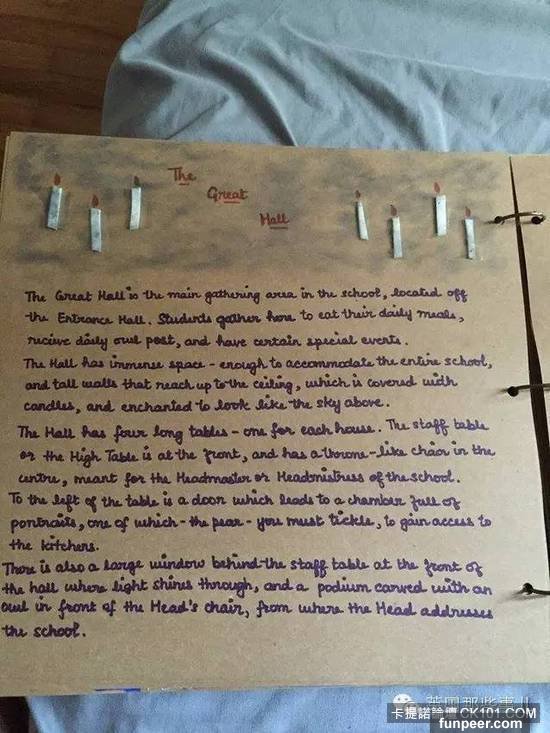 The
Great
Hall
The Great Hall is the main gathering area in the school, located off
the Entrance Hall. Students gather here to eat their daily meals,
recieve daily owl post, and have certain special events.
The Hall has immense space - enough to accommodate the entire school,
and tall walls that reach up to the ceiling, which is covered with
candles, and enchanted to look like the sky above.
The Hall has four long tables - one for each house. The staff table
or the High Table is at the front, and has a throne-like chair in the
centre, meant for the Headmaster or Headmistress of the school.
To the left of the table is a door which leads to a chamber full of
portraits, one of which - the pear - you must tickle, to gain access to
the kitchens.
There is also a large window behind the staff table at the front of
the hall where light shines through, and a podium carved with an
owl in front of the Head's chair, from where the Head addresses
the school.
英国那些事儿
卡提諾論壇 CK101.COM
funpeer.com